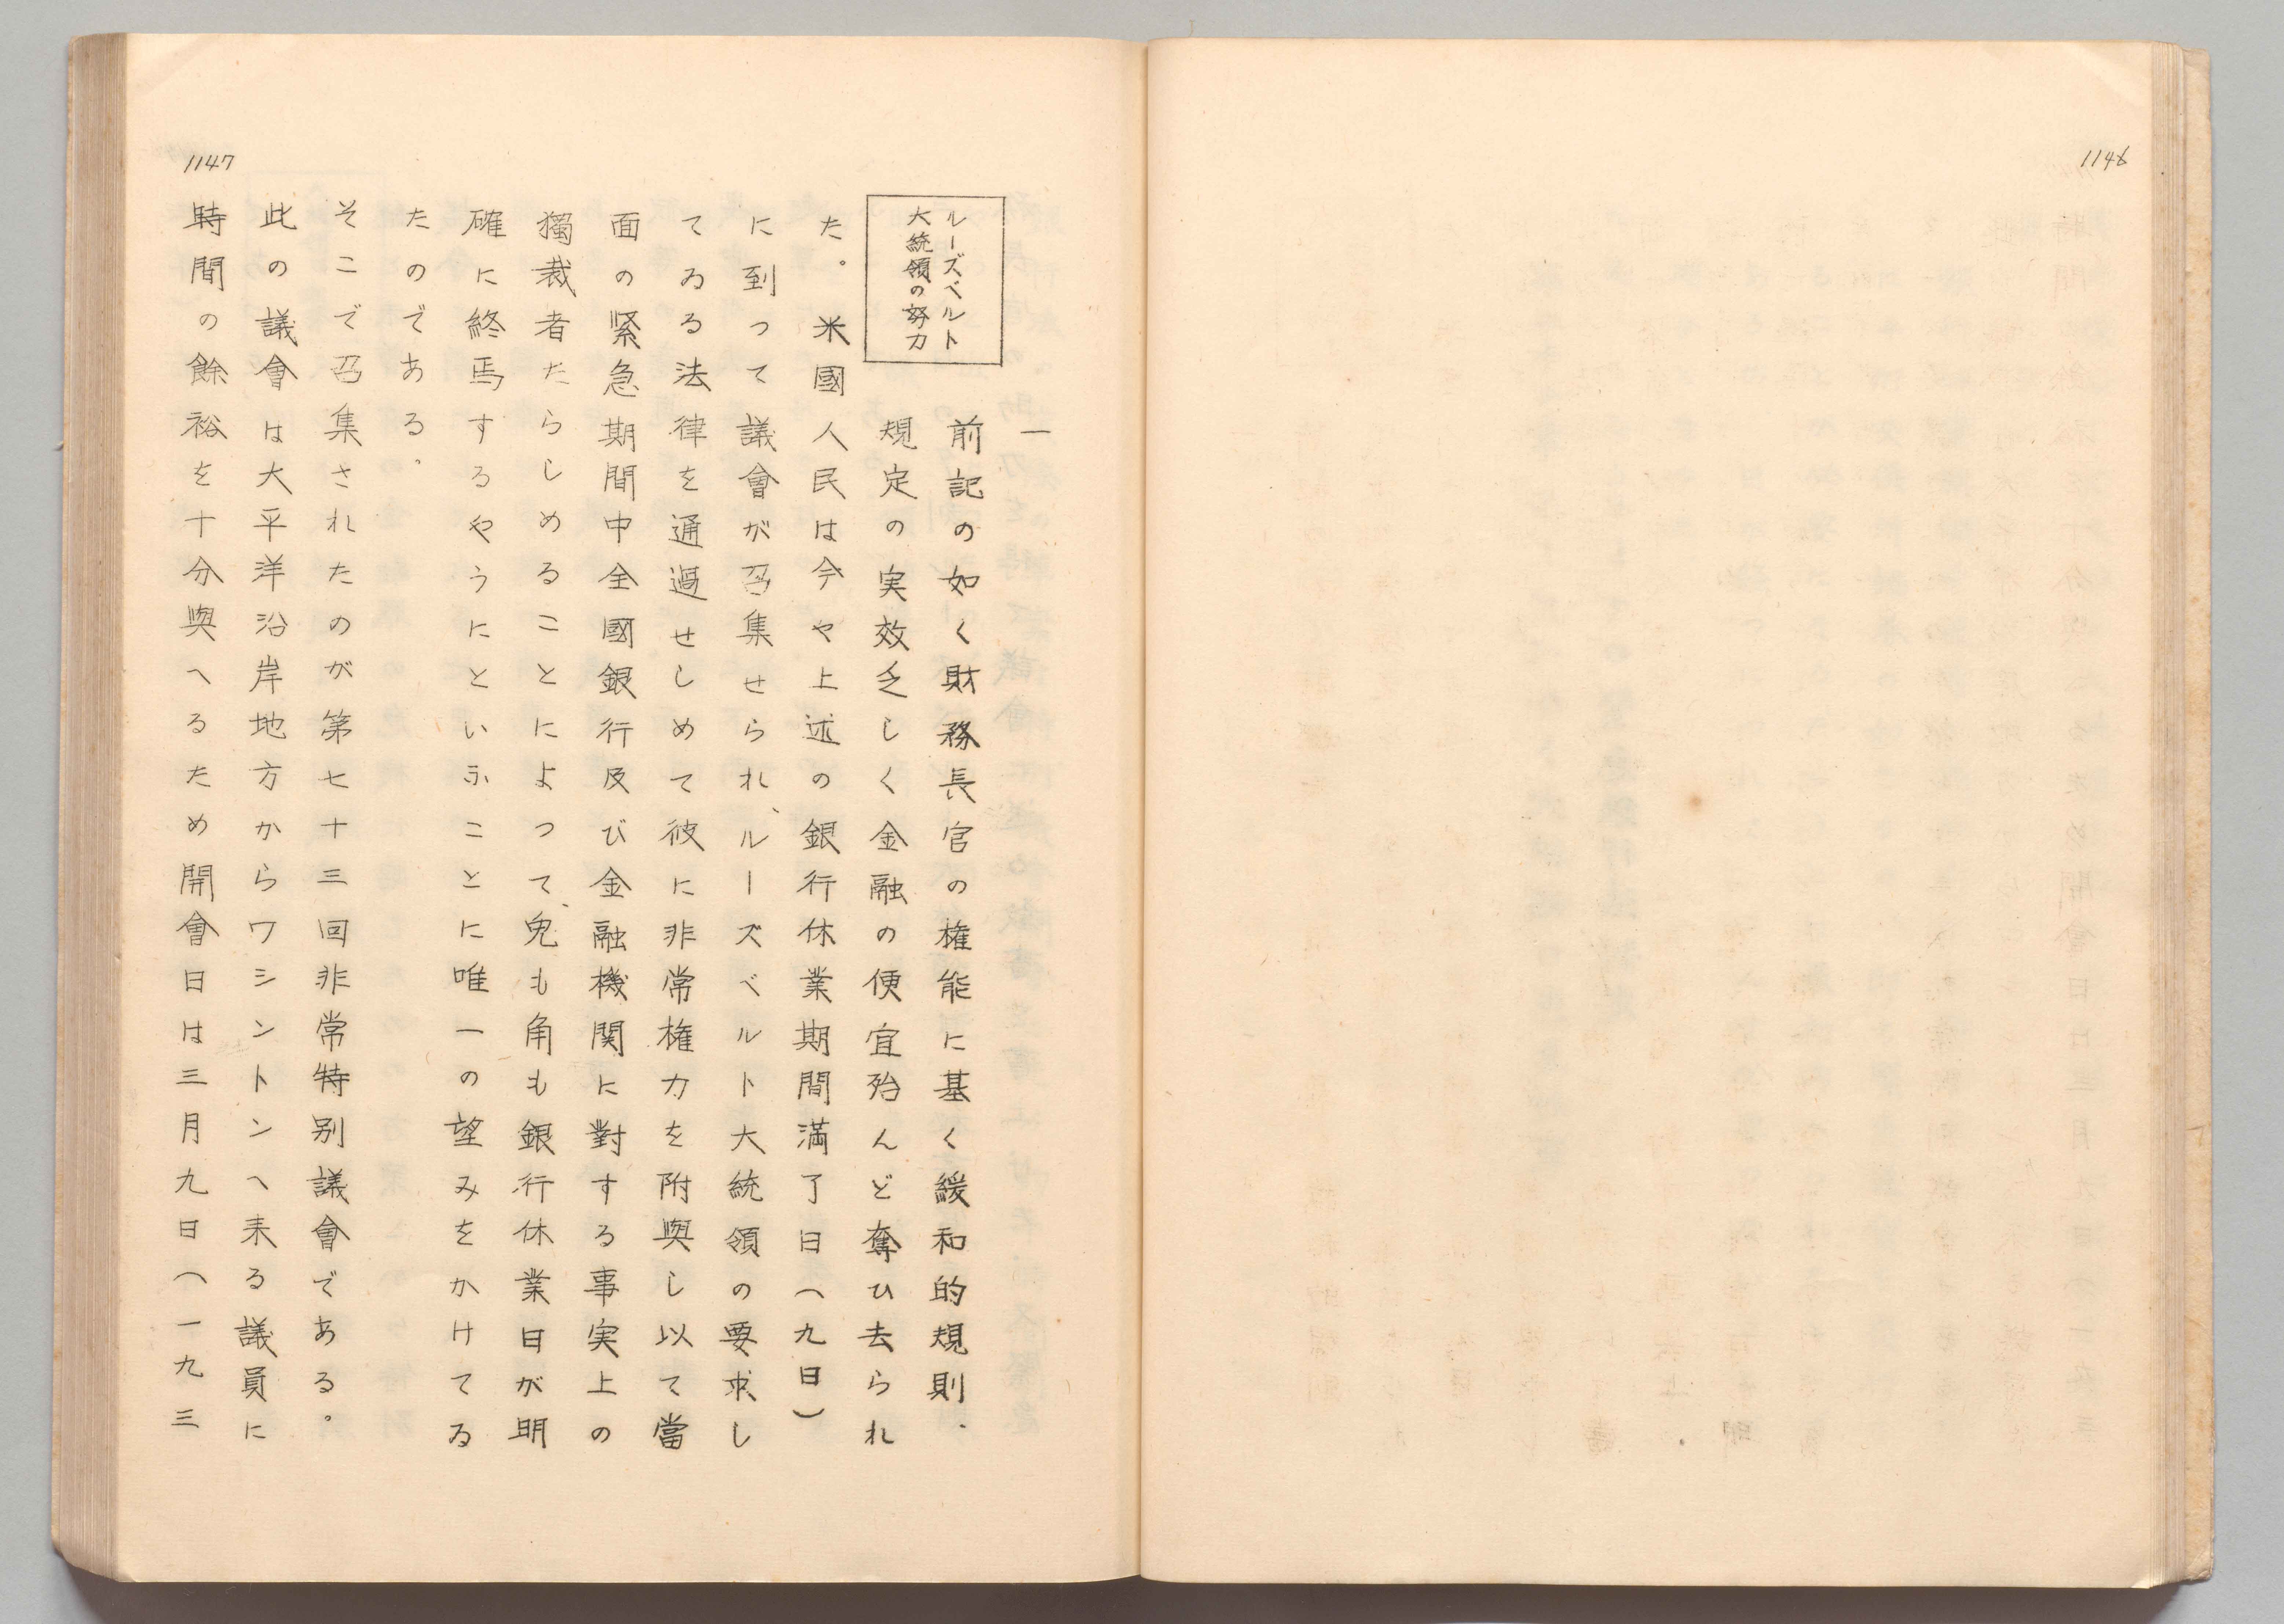 1146
1147
一
ルーズベルト
大統領の努力
前記の如く財務長官の権能に基く緩和的規則、
規定の実效乏しく金融の便宜殆んど奪ひ去られ
た。米國人民は今や上述の銀行休業期間満了日(九日)
に到って議會が召集せられ、ルーズベルト大統領の要求し
てゐる法律を通過せしめて彼に非常権力を附與し以て當
面の緊急期間中全國銀行及び金融機関に對する事実上の
獨裁者たらしめることによつて、兎も角も銀行休業日が明
確に終焉するやうにといふことに唯一の望みをかけてゐ
たのである。
そこで召集されたのが第七十三回非常特別議會である。
此の議會は大平洋沿岸地方からワシントンへ来る議員に
時間の餘裕を十分與へるため開會日は三月九日(一九三